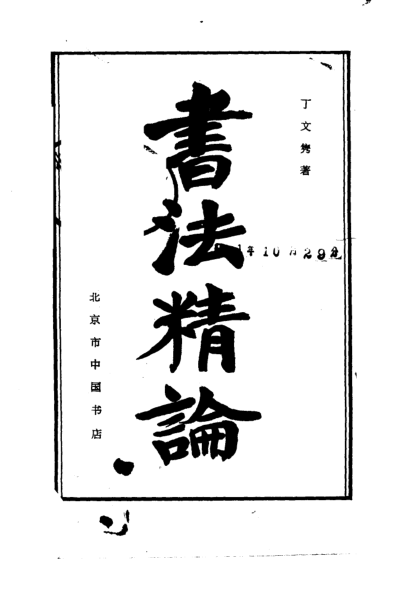 丁文隽著
書法精論
年10月29
北京市中国书店